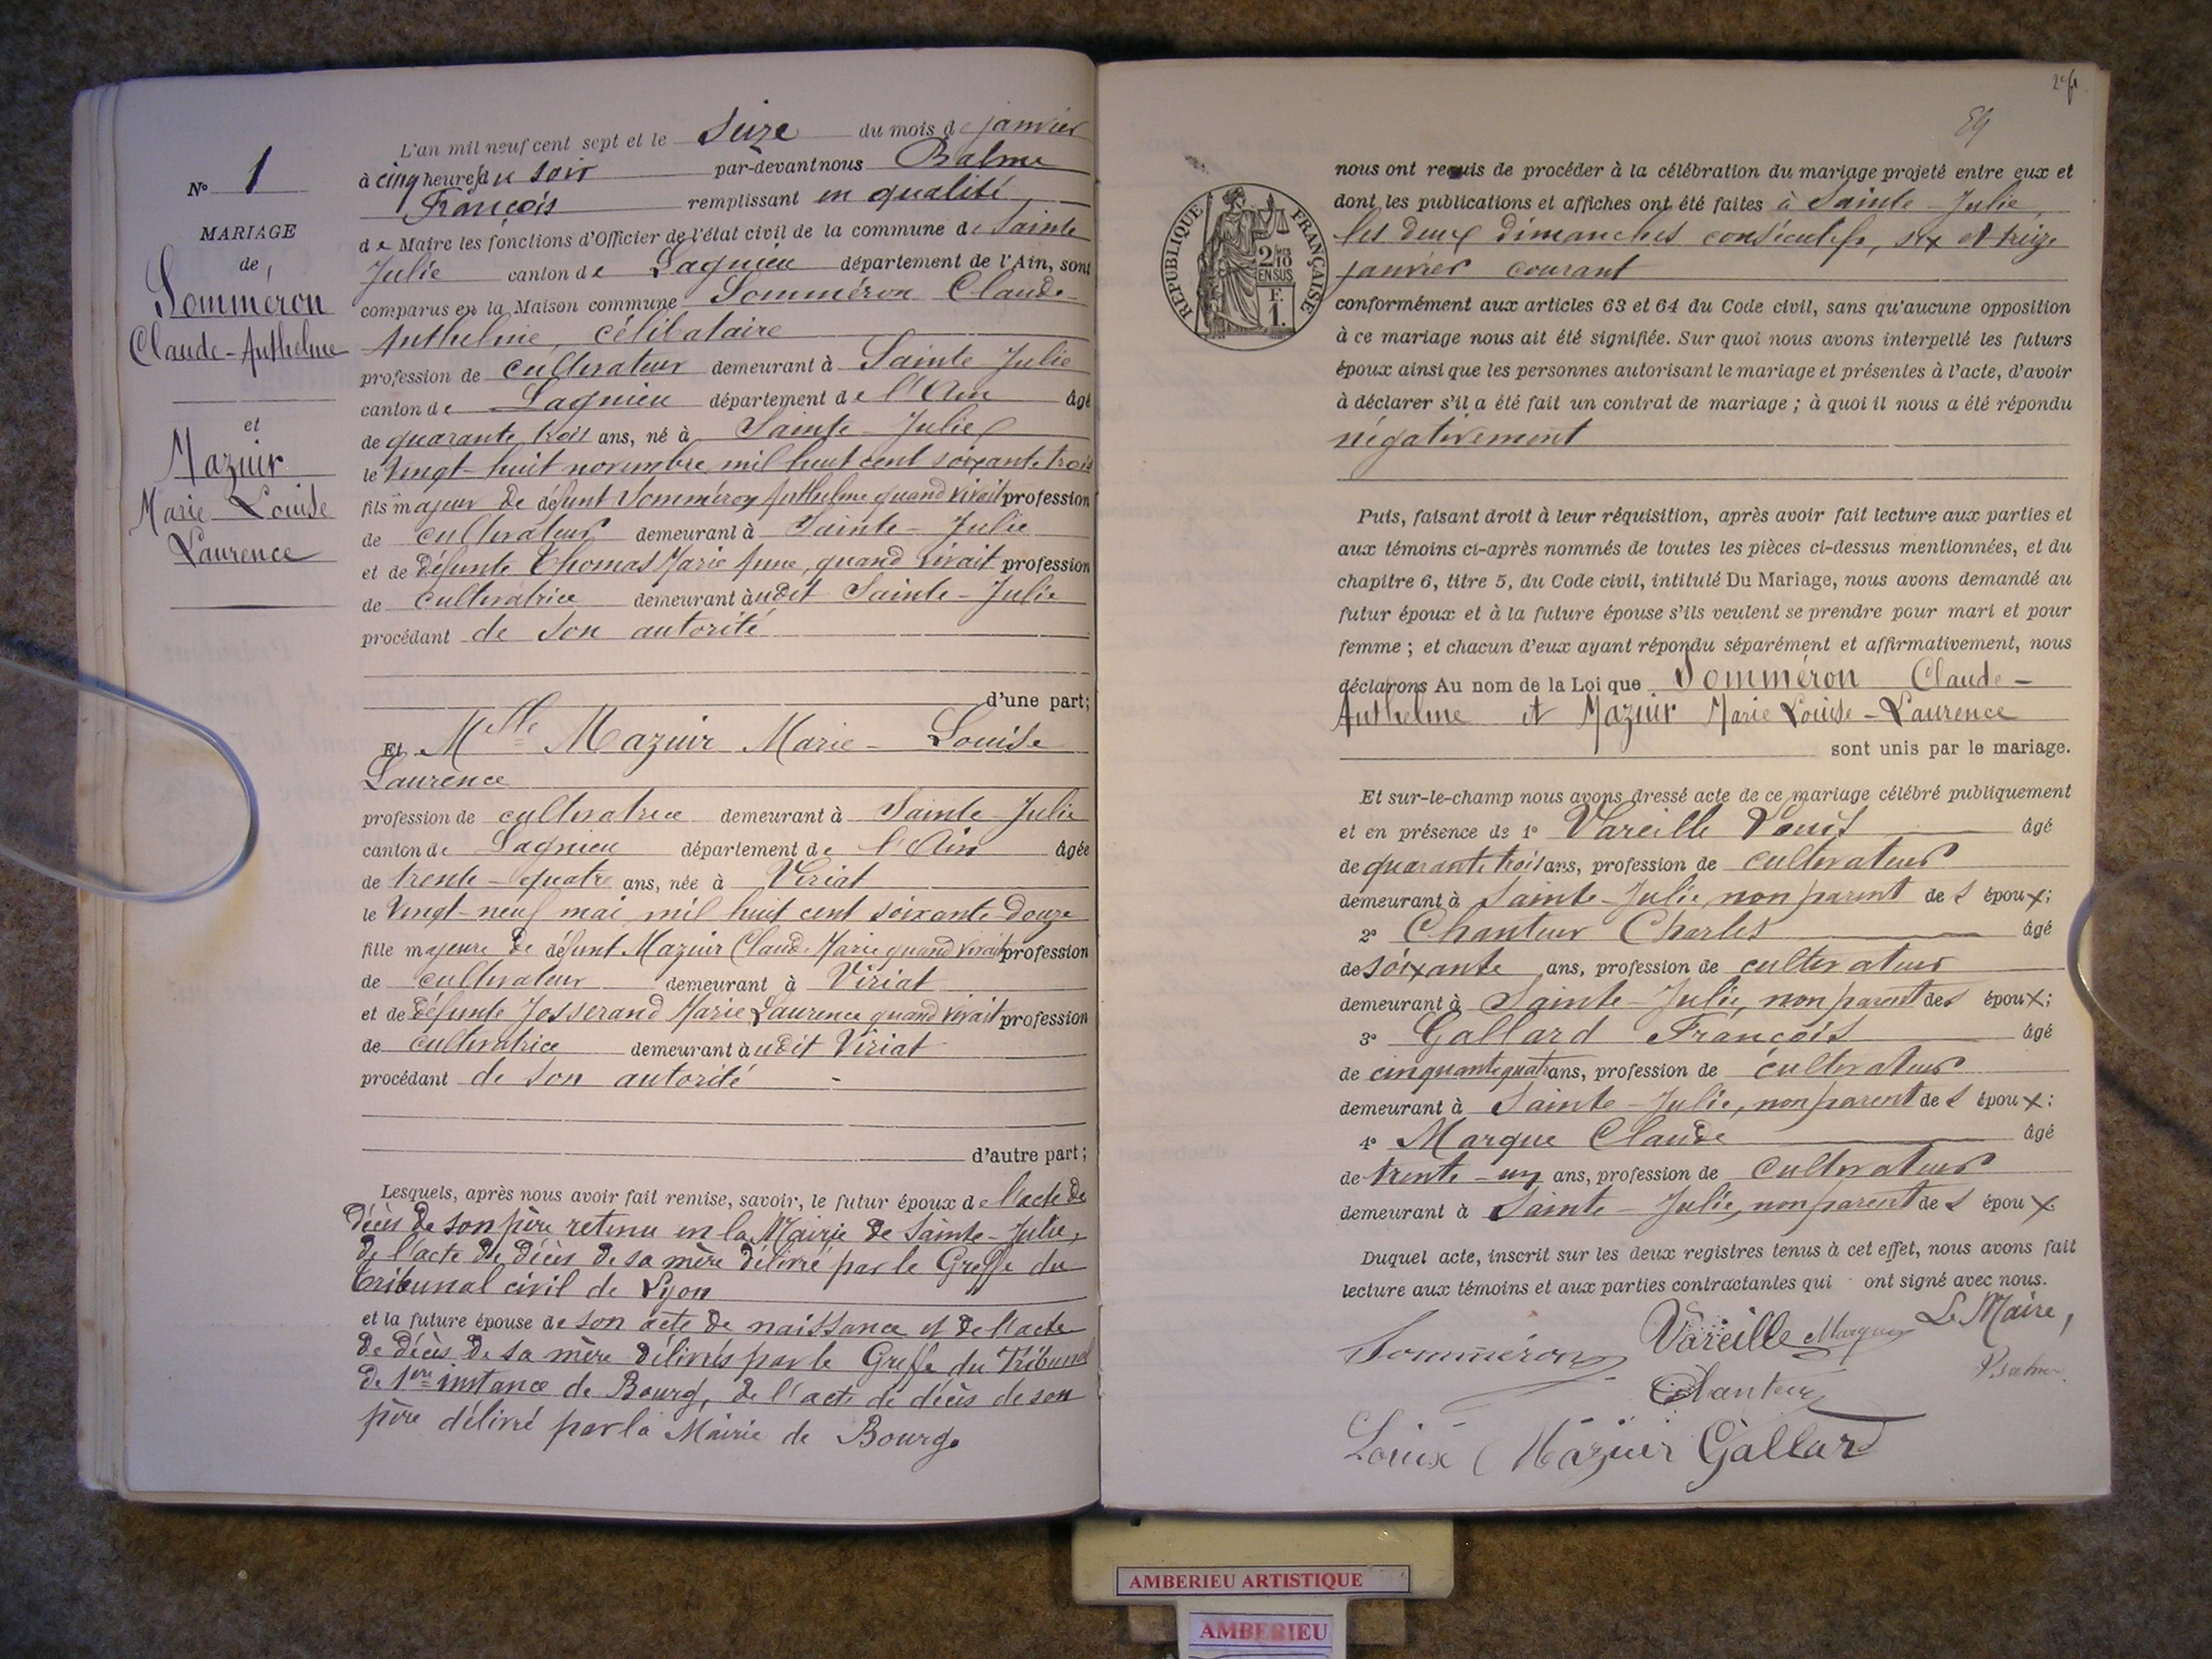 N° 1
MARIAGE
de
Somméron
Claude-Anthelme
et
Mazuir
Marie Louise
Laurence
L'an mil neuf cent sept et le seize du mois de janvier
à cinq heures du soir par-devant nous Balme
François remplissant en qualité
de Maire les fonctions d'Officier de l'état civil de la commune de Sainte
Julie canton de Lagnieu département de l'Ain, sont
comparus en la Maison commune Somméron Claude-
Anthelme, célibataire
profession de cultivateur demeurant à Sainte Julie
canton de Lagnieu département de l'Ain âgé
de quarante trois ans, né à Sainte-Julie
le vingt-huit novembre mil huit cent soixante trois
fils majeur de défunt Somméron Anthelme quand vivait profession
de cultivateur demeurant à Sainte-Julie
et de défunte Thomas Marie Anne, quand vivait profession
de cultivatrice demeurant àudit Sainte-Julie
procédant de son autorité
d'une part;
Et Mlle Mazuir Marie-Louise
Laurence
profession de cultivatrice demeurant à Sainte-Julie
canton de Lagnieu département de l'Ain âgée
de trente-quatre ans, née à Viriat
le vingt-neuf mai mil huit cent soixante-douze
fille majeure de défunt Mazuir Claude Marie quand vivait profession
de cultivateur demeurant à Viriat
et de défunte Josserand Marie Laurence quand vivait profession
de cultivatrice demeurant àudit Viriat
procédant de son autorité
d'autre part;
Lesquels, après nous avoir fait remise, savoir, le futur époux de l'acte de
décès de son père retenu en la Mairie de Sainte-Julie,
de l'acte de décès de sa mère délivré par le Greffe du
tribunal civil de Lyon
et la future épouse de son acte de naissance et de l'acte
de décès de sa mère délivrés par le Greffe du Tribunal
de 1ère instance de Bourg, de l'acte de décès de son
père délivré par la Mairie de Bourg.
RÉPUBLIQUE FRANÇAISE
2/10
EN SUS
F.
1.
nous ont requis de procéder à la célébration du mariage projeté entre eux et
dont les publications et affiches ont été faites à Sainte-Julie,
les deux dimanches consécutifs, six et treize
janvier courant
conformément aux articles 63 et 64 du Code civil, sans qu'aucune opposition
à ce mariage nous ait été signifiée. Sur quoi nous avons interpellé les futurs
époux ainsi que les personnes autorisant le mariage et présentes à l'acte, d'avoir
à déclarer s'il a été fait un contrat de mariage; à quoi il nous a été répondu
négativement
Puis, faisant droit à leur réquisition, après avoir fait lecture aux parties et
aux témoins ci-après nommés de toutes les pièces ci-dessus mentionnées, et du
chapitre 6, titre 5, du Code civil, intitulé Du Mariage, nous avons demandé au
futur époux et à la future épouse s'ils veulent se prendre pour mari et pour
femme; et chacun d'eux ayant répondu séparément et affirmativement, nous
déclarons Au nom de la Loi que Somméron Claude-
Anthelme et Mazuir Marie Louise-Laurence
sont unis par le mariage.
Et sur-le-champ nous avons dressé acte de ce mariage célébré publiquement
et en présence de 1° Vareille Louis âgé
de quarante trois ans, profession de cultivateur
demeurant à Sainte-Julie, non parent des époux;
2° Chanteur Charles âgé
de soixante ans, profession de cultivateur
demeurant à Sainte-Julie, non parent des époux;
3° Gallard François âgé
de cinquante quatre ans, profession de cultivateur
demeurant à Sainte-Julie, non parent des époux;
4° Marque Claude âgé
de trente-un ans, profession de cultivateur
demeurant à Sainte-Julie, non parent des époux
Duquel acte, inscrit sur les deux registres tenus à cet effet, nous avons fait
lecture aux témoins et aux parties contractantes qui ont signé avec nous.
Le Maire,
Somméron Vareille Marque
Chanteur Balme
Louise Mazuir Gallard
AMBERIEU ARTISTIQUE
AMBERIEU